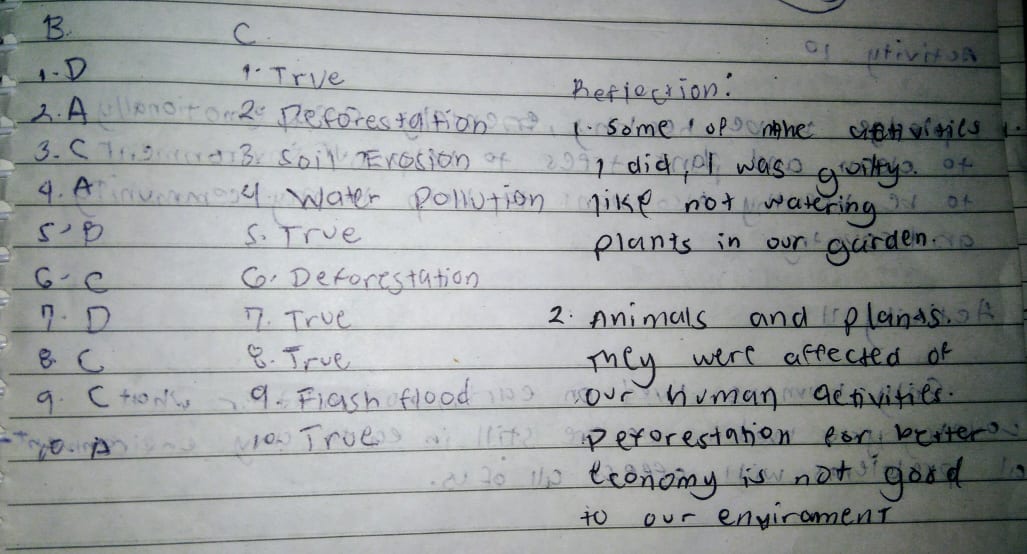 B.
1. D
2. A
3. C
4. A
5. B
6. C
7. D
8. C
9. C
10. A
C.
1. True
2. Deforestation
3. Soil Erosion
4 Water Pollution
5. True
6. Deforestation
7. True
8. True
9. Flash flood
10. True
Reflection:
1. Some of the activities
I did, I was guilty
like not watering
plants in our garden.
2. Animals and plants.
They were affected of
our human activities.
Deforestation for better
economy is not good
to our envirament